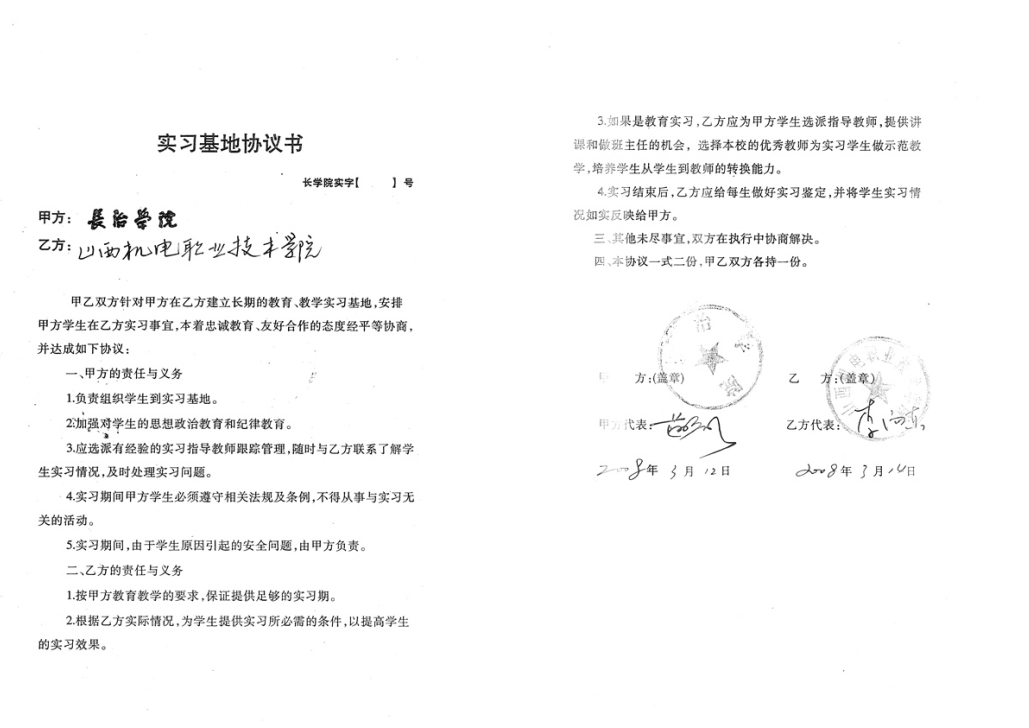 实习基地协议书
长学院实字【 】号
甲方：長治學院
乙方：山西机电职业技术学院
甲乙双方针对甲方在乙方建立长期的教育、教学实习基地，安排
甲方学生在乙方实习事宜，本着忠诚教育、友好合作的态度经平等协商，
并达成如下协议：
一、甲方的责任与义务
1.负责组织学生到实习基地。
2.加强对学生的思想政治教育和纪律教育。
3.应选派有经验的实习指导教师跟踪管理，随时与乙方联系了解学
生实习情况，及时处理实习问题。
4.实习期间甲方学生必须遵守相关法规及条例，不得从事与实习无
关的活动。
5.实习期间，由于学生原因引起的安全问题，由甲方负责。
二、乙方的责任与义务
1.按甲方教育教学的要求，保证提供足够的实习期。
2.根据乙方实际情况，为学生提供实习所必需的条件，以提高学生
的实习效果。
3.如果是教育实习，乙方应为甲方学生选派指导教师，提供讲
课和做班主任的机会，选择本校的优秀教师为实习学生做示范教
学，培养学生从学生到教师的转换能力。
4.实习结束后，乙方应给每生做好实习鉴定，并将学生实习情
况如实反映给甲方。
三、其他未尽事宜，双方在执行中协商解决。
四、本协议一式二份，甲乙双方各持一份。
甲 方：(盖章) 乙 方：(盖章)
甲方代表： 乙方代表：
2008年3月12日 2008年3月14日